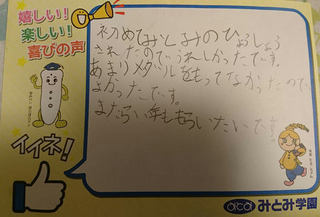 嬉しい!
楽しい!
喜びの声
初めてみとみのひょうしょう
されたのでうれしかったです。
あまりメダルをもってなかったので
よかったです。
またらい年ももらいたいです。
イイネ!
みとみ学園